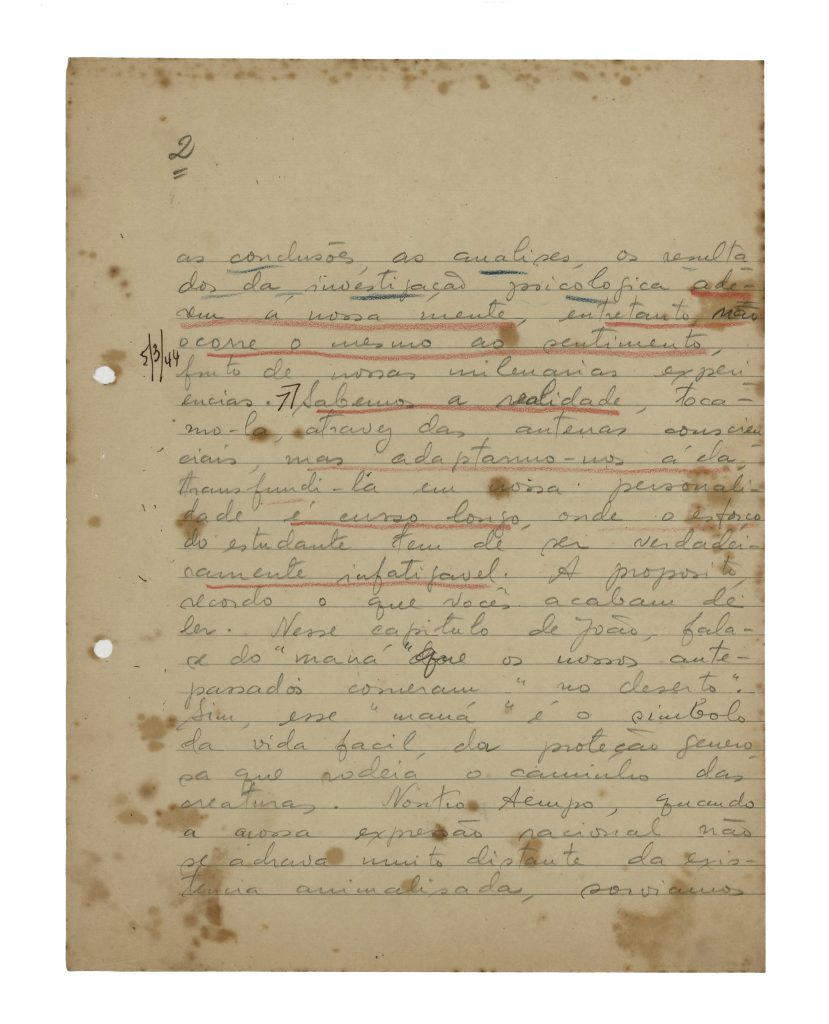 2
as conclusões, as analises, os resulta
dos da investigação psicologica adé-
rem á nossa mente, entretanto, não
ocorre o mesmo ao sentimento,
5/3/44
fruto de nossas milenarias experi
encias. Sabemos a realidade, toca-
mo-la, atravez das antenas conscien
ciais, mas adaptarmo-nos á ela,
transfundi-la em nossa personali-
dade é curso longo, onde o esforço
do estudante tem de ser verdadei-
ramente infatigavel. A proposito,
recordo o que vocês acabam de
ler. Nesse capitulo de João, fala-
se do "maná" que os nossos ante-
passados comeram "no deserto".
Sim, esse "maná" é o simbolo
da vida facil, da proteção genero
sa que rodeia o caminho das
creaturas. Noutro tempo, quando
a nossa expressão racional não
se achava muito distante da exis-
tencia animalisada, sorviamos